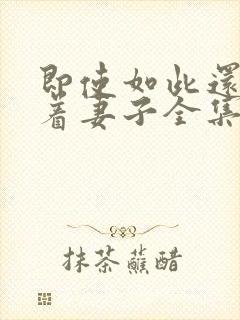 即使如此還
着妻子全集
抹茶蘸醋